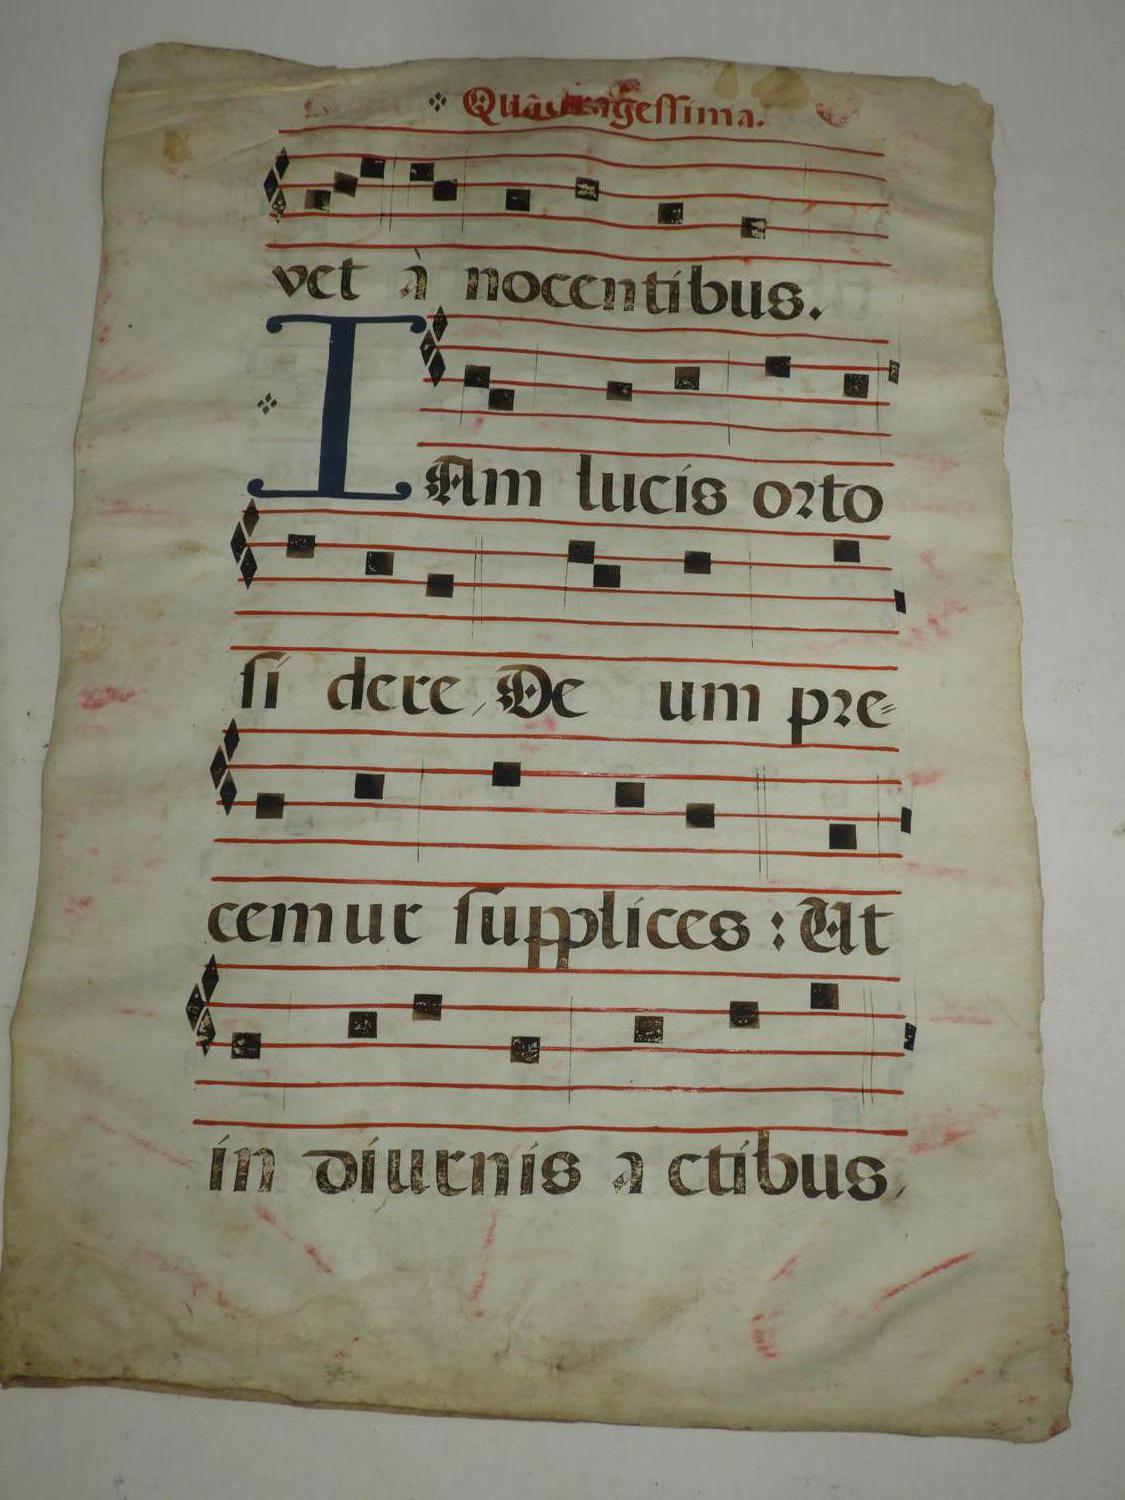 Quadragessima.
vet à nocentibus.
IAm lucis orto
si dere, De um pre=
cemur supplices : Ut
in diurnis a ctibus,